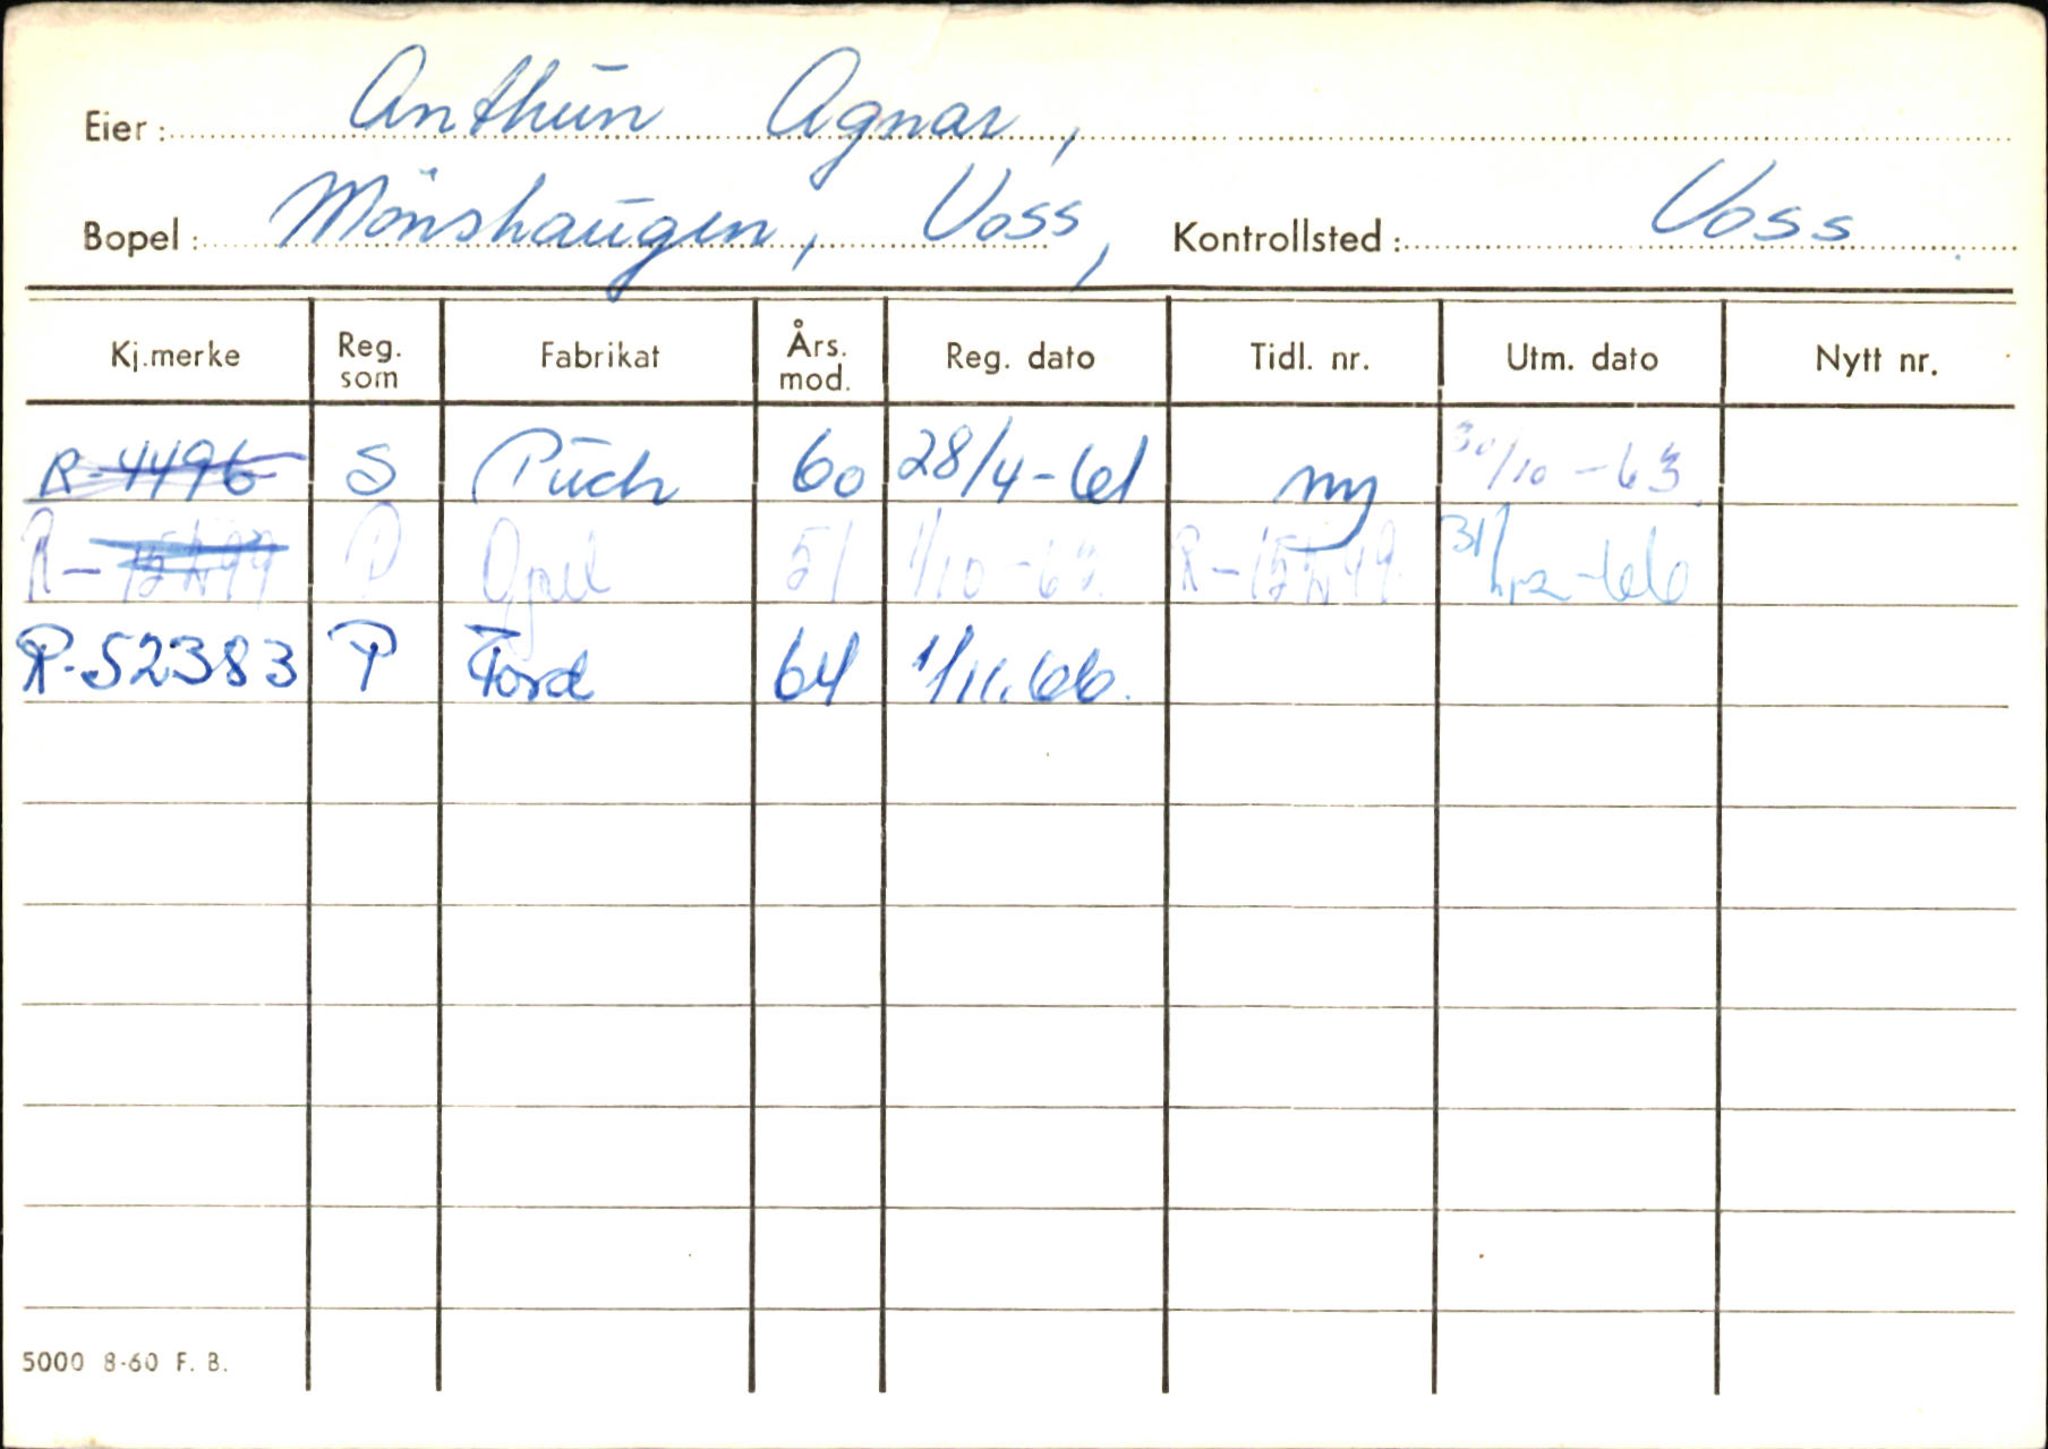 Eier: Anthun Agnar,
Bopel: Mönshaugen, Voss, Kontrollsted: Voss
Kj.merke Reg. som Fabrikat Års. mod. Reg. dato Tidl. nr. Utm. dato Nytt nr.
R-4496 S Puch 60 28/4-61 ny 30/10-63
P Opel 51 1/10-63
R-52383 P Ford 64 1/11.66.
5000 8-60 F. B.